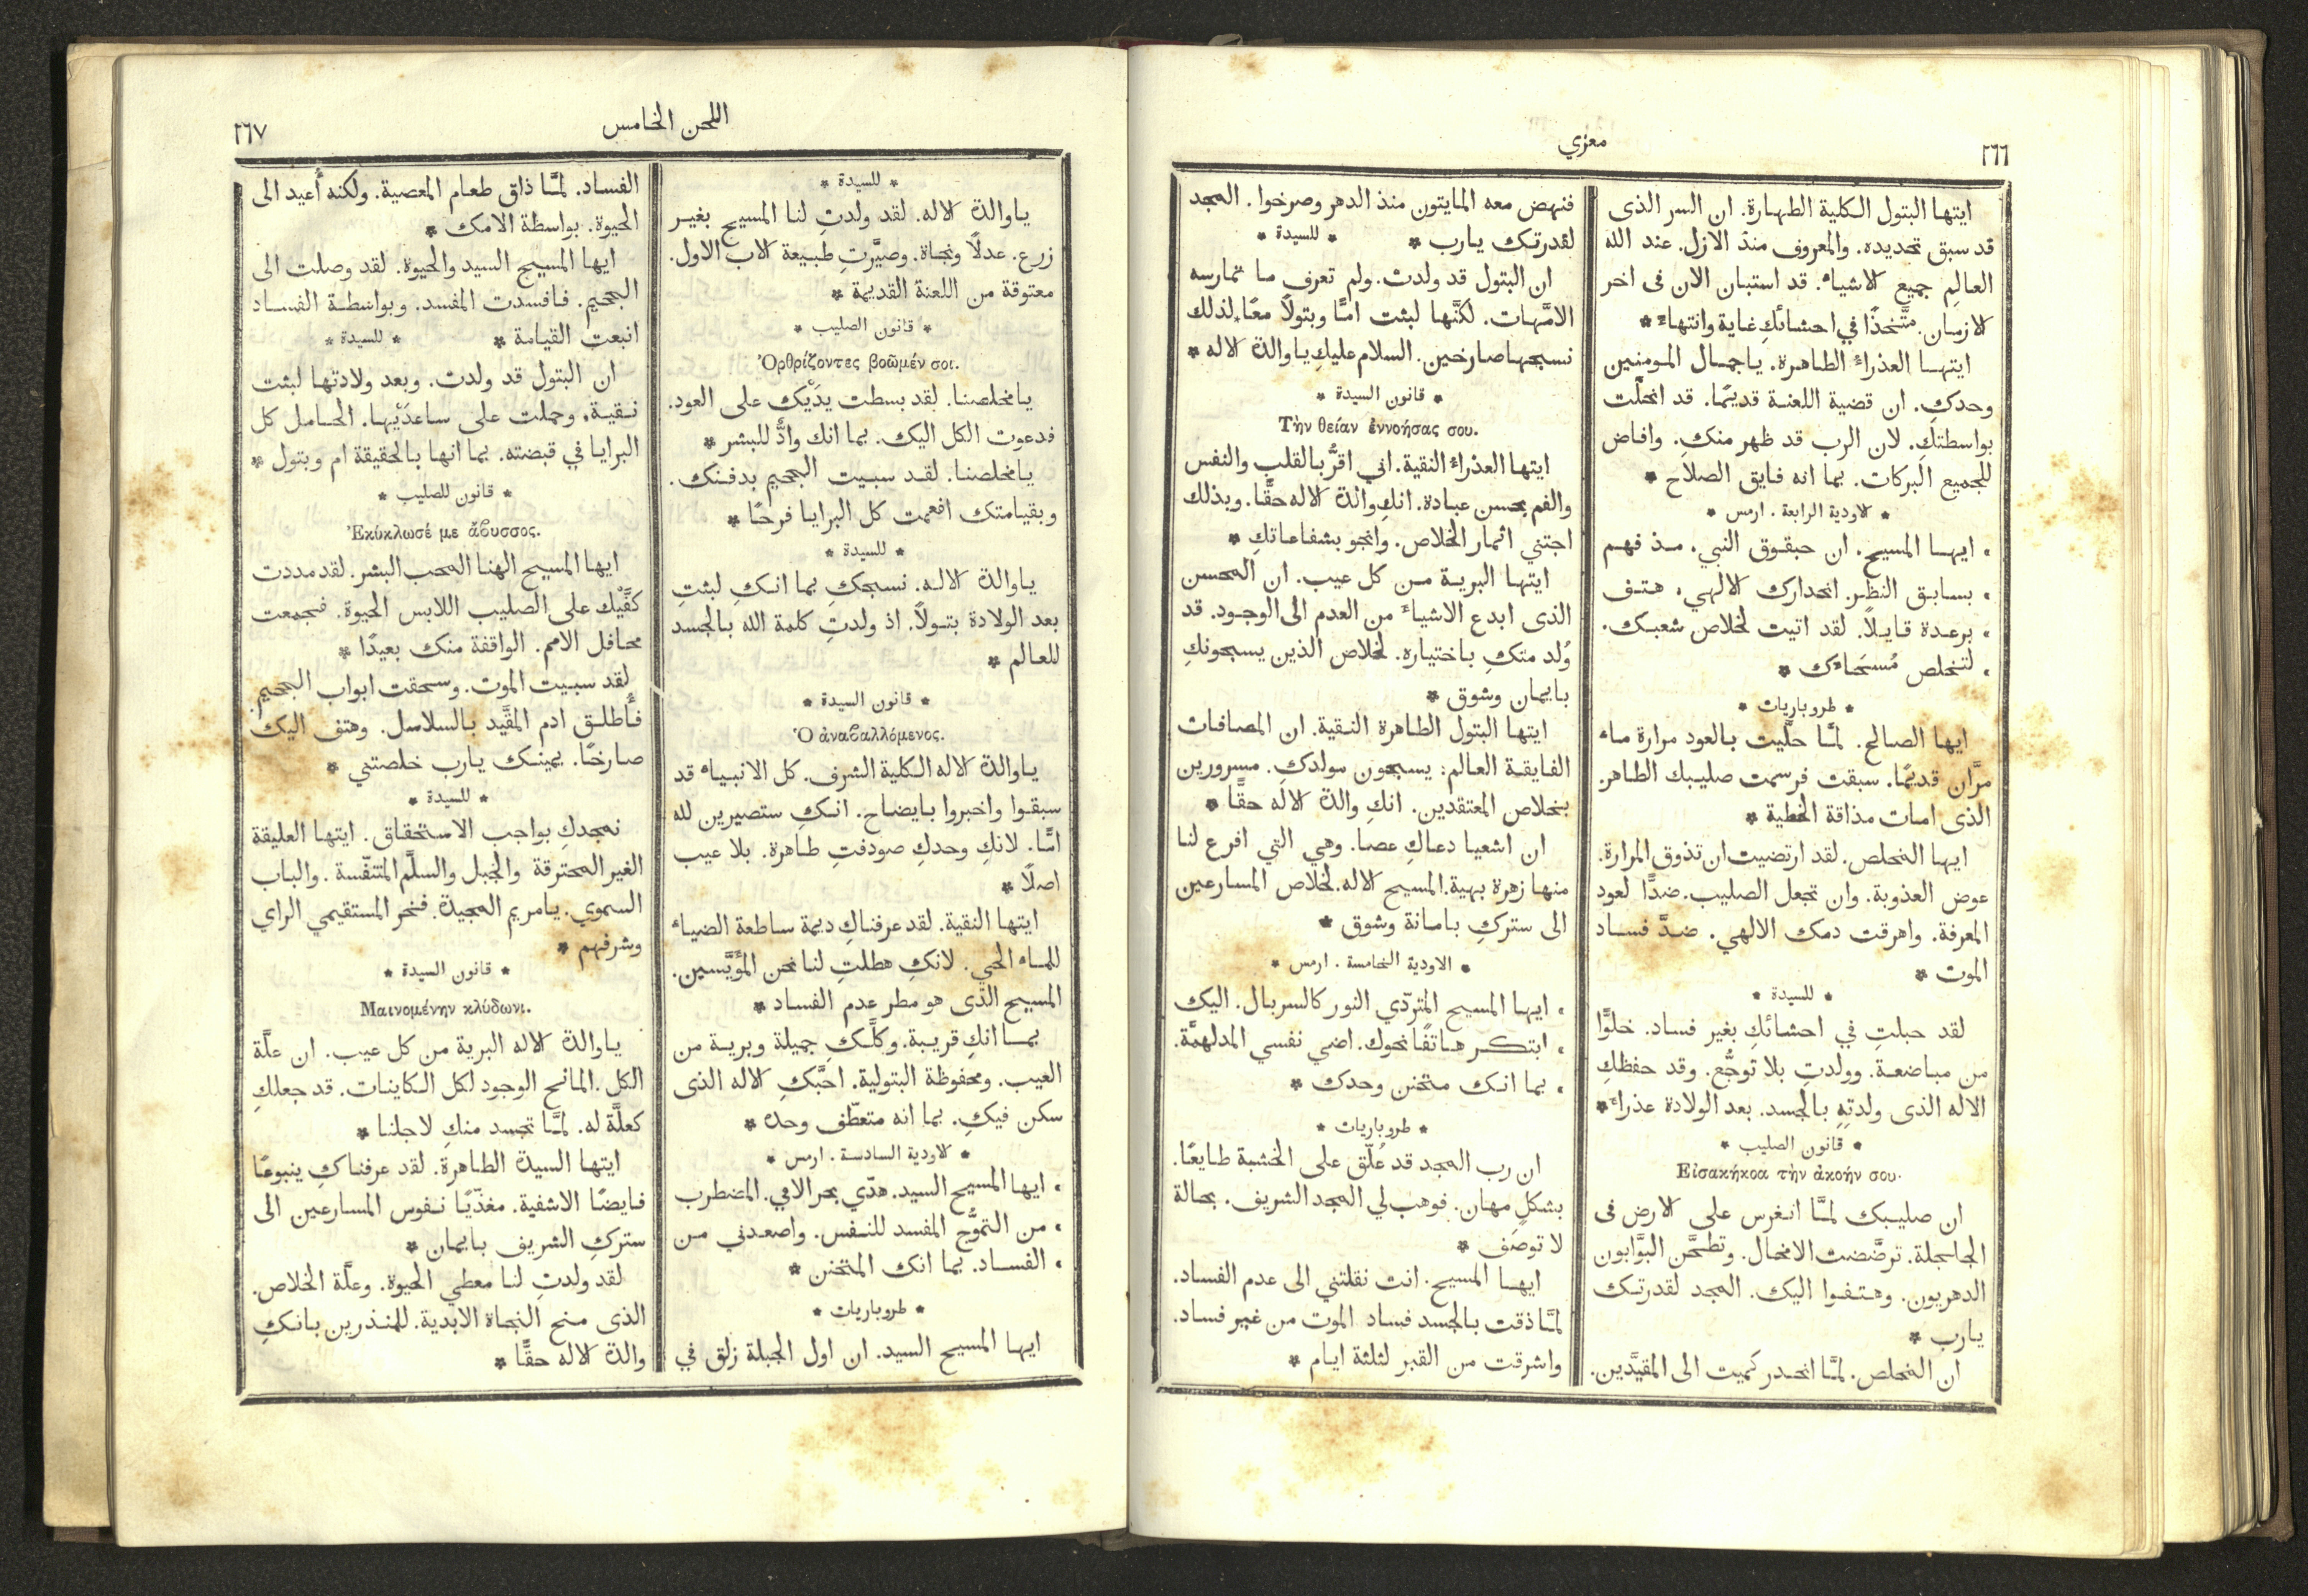 ٢٦٦
معزي
ايتها البتول الكلية الطهارة. ان السر الذى
قد سبق تحديده. والمعروف منذ الازل. عند الله
العالِم جميع الاشياء. قد استبان الان فى اخر
الازمان. متَّخذًا في احشائكِ غاية وانتهاءً *
ايتها العذراءُ الطاهرة. ياجمال المومنين
وحدكِ. ان قضية اللعنة قديمًا. قد انحلَّت
بواسطتكِ. لان الرب قد ظهر منكِ. وافاض
للجميع البركات. بما انه فايق الصلاح *
* الاودية الرابعة . ارمس *
، ايها المسيح. ان حبقوق النبي. مذ فهم
، بسابق النظر. انحدارك الالهي. هتف
، برعدة قايلاً. لقد اتيت لخلاص شعبك.
، لتخلص مُسحَاءَك *
* طروباريات *
ايها الصالح. لمَّا حلَّيت بالعود مرارة ماء
مرَّان قديمًا. سبقت فرسمت صليبك الطاهر.
الذى امات مذاقة الخطية *
ايها المخلص. لقد ارتضيت ان تذوق المرارة.
عوض العذوبة. وان تجعل الصليب. ضدًّا لعود
المعرفة. واهرقت دمك الالهي. ضدَّ فساد
الموت *
* للسيدة *
لقد حبلتِ في احشائكِ بغير فساد. خلوًّا
من مباضعة. وولدتِ بلا توجُّع. وقد حفظكِ
الاله الذى ولدتِهِ بالجسد. بعد الولادة عذراءً *
* قانون الصليب *
Εἰσακήκοα τὴν ἀκοήν σου.
ان صليبك لمَّا انغرس على الارض فى
الجاجلة. ترضَّضت الامخال. وتطحَّن البوَّابون
الدهريون. وهتفوا اليك. المجد لقدرتك
يارب *
ان المخلص. لمَّا انحدر كميت الى المقيَّدين.
فنهض معه المايتون منذ الدهر وصرخوا. المجد
لقدرتك يارب * * للسيدة *
ان البتول قد ولدت. ولم تعرف ما تمارسه
الامَّهات. لكنَّها لبثت امًّا وبتولاً معًا. لذلك
نسبحها صارخين. السلام عليكِ ياوالدة الاله *
* قانون السيدة *
Τὴν θείαν ἐννοήσας σου.
ايتها العذراءُ النقية. اني اقرُّ بالقلب والنفس
والفم بحسن عبادة. انكِ والدة الاله حقًّا. وبذلك
اجتني اثمار الخلاص. وانجو بشفاعاتكِ *
ايتها البرية من كل عيب. ان المحسن
الذى ابدع الاشياءَ من العدم الى الوجود. قد
وُلد منكِ باختياره. لخلاص الذين يسبحونكِ
بايمان وشوق *
ايتها البتول الطاهرة النقية. ان المصافات
الفايقة العالم: يسبحون مولدكِ. مسرورين
بخلاص المعتقدين. انكِ والدة الاله حقًّا *
ان اشعيا دعاكِ عصا. وهي التي افرع لنا
منها زهرة بهية. المسيح الاله. لخلاص المسارعين
الى ستركِ بامانة وشوق *
* الاودية الخامسة . ارمس *
، ايها المسيح المتردّي النور كالسربال. اليك
، ابتكر هاتفًا نحوك. اضي نفسي المدلهمَّة.
، بما انك متحنن وحدك *
* طروباريات *
ان رب المجد قد عُلّق على الخشبة طايعًا.
بشكلٍ مهان. فوهب لي المجد الشريف. بحالة
لا توصَف *
ايها المسيح. انت نقلتني الى عدم الفساد.
لمَّا ذقت بالجسد فساد الموت من غير فساد.
واشرقت من القبر لثلثة ايام *
اللحن الخامس
٢٦٧
* للسيدة *
ياوالدة الاله. لقد ولدتِ لنا المسيح بغير
زرع. عدلاً ونجاة. وصيَّرتِ طبيعة الاب الاول.
معتوقة من اللعنة القديمة *
* قانون الصليب *
Ὀρθρίζοντες βοῶμέν σοι.
يامخلصنا. لقد بسطت يدَيْك على العود.
فدعوت الكل اليك. بما انك وادٌّ للبشر *
يامخلصنا. لقد سبيت الجحيم بدفنك.
وبقيامتك افعمت كل البرايا فرحًا *
* للسيدة *
ياوالدة الاله. نسبحكِ بما انكِ لبثتِ
بعد الولادة بتولاً. اذ ولدتِ كلمة الله بالجسد
للعالم *
* قانون السيدة *
Ὁ ἀναβαλλόμενος.
ياوالدة الاله الكلية الشرف. كل الانبياء قد
سبقوا واخبروا بايضاح. انكِ ستصيرين لله
امًّا. لانكِ وحدكِ صودفتِ طاهرة. بلا عيب
اصلاً *
ايتها النقية. لقد عرفناكِ ديمة ساطعة الضياء
للماء الحي. لانكِ هطلتِ لنا نحن المؤَيَّسين.
المسيح الذى هو مطر عدم الفساد *
بما انكِ قريبة. وكلَّكِ جميلة وبرية من
العيب. ومحفوظة البتولية. احبَّكِ الاله الذى
سكن فيكِ. بما انه متعطّف وحده *
* الاودية السادسة . ارمس *
، ايها المسيح السيد. هدّي بحر الامي. المضطرب
، من التموُّج المفسد للنفس. واصعدني من
، الفساد. بما انك المتحنن *
* طروباريات *
ايها المسيح السيد. ان اول الجبلة زلق في
الفساد. لمَّا ذاق طعام المعصية. ولكنه أُعيد الى
الحيوة. بواسطة الامك *
ايها المسيح السيد والحيوة. لقد وصلت الى
الجحيم. فافسدت المفسد. وبواسطة الفساد
انبعت القيامة * * للسيدة *
ان البتول قد ولدت. وبعد ولادتها لبثت
نقية. وحملت على ساعدَيْها. الحامل كل
البرايا في قبضته. بما انها بالحقيقة ام وبتول *
* قانون للصليب *
Ἐκύκλωσέ με ἄβυσσος.
ايها المسيح الهنا المحب البشر. لقد مددت
كفَّيْك على الصليب اللابس الحيوة. فجمعت
محافل الامم. الواقفة منك بعيدًا *
لقد سبيت الموت. وسحقت ابواب الجحيم.
فأُطلق ادم المقَّيد بالسلاسل. وهتف اليك
صارخًا. يمينك يارب خلصتني *
* للسيدة *
نمجدكِ بواجب الاستحقاق. ايتها العليقة
الغير المحترقة والجبل والسلَّم المتنفّسة. والباب
السموي. يامريم المجيدة. فخر المستقيمي الراي
وشرفهم *
* قانون السيدة *
Μαινομένην κλύδωνι.
ياوالدة الاله البرية من كل عيب. ان علَّة
الكل. المانح الوجود لكل الكاينات. قد جعلكِ
كعلَّة له. لمَّا تجسد منكِ لاجلنا *
ايتها السيدة الطاهرة. لقد عرفناكِ ينبوعًا
فايضًا الاشفية. مغذّيًا نفوس المسارعين الى
ستركِ الشريف بايمان *
لقد ولدتِ لنا معطي الحيوة. وعلَّة الخلاص.
الذى منح النجاة الابدية. للمنذرين بانكِ
والدة الاله حقًّا *